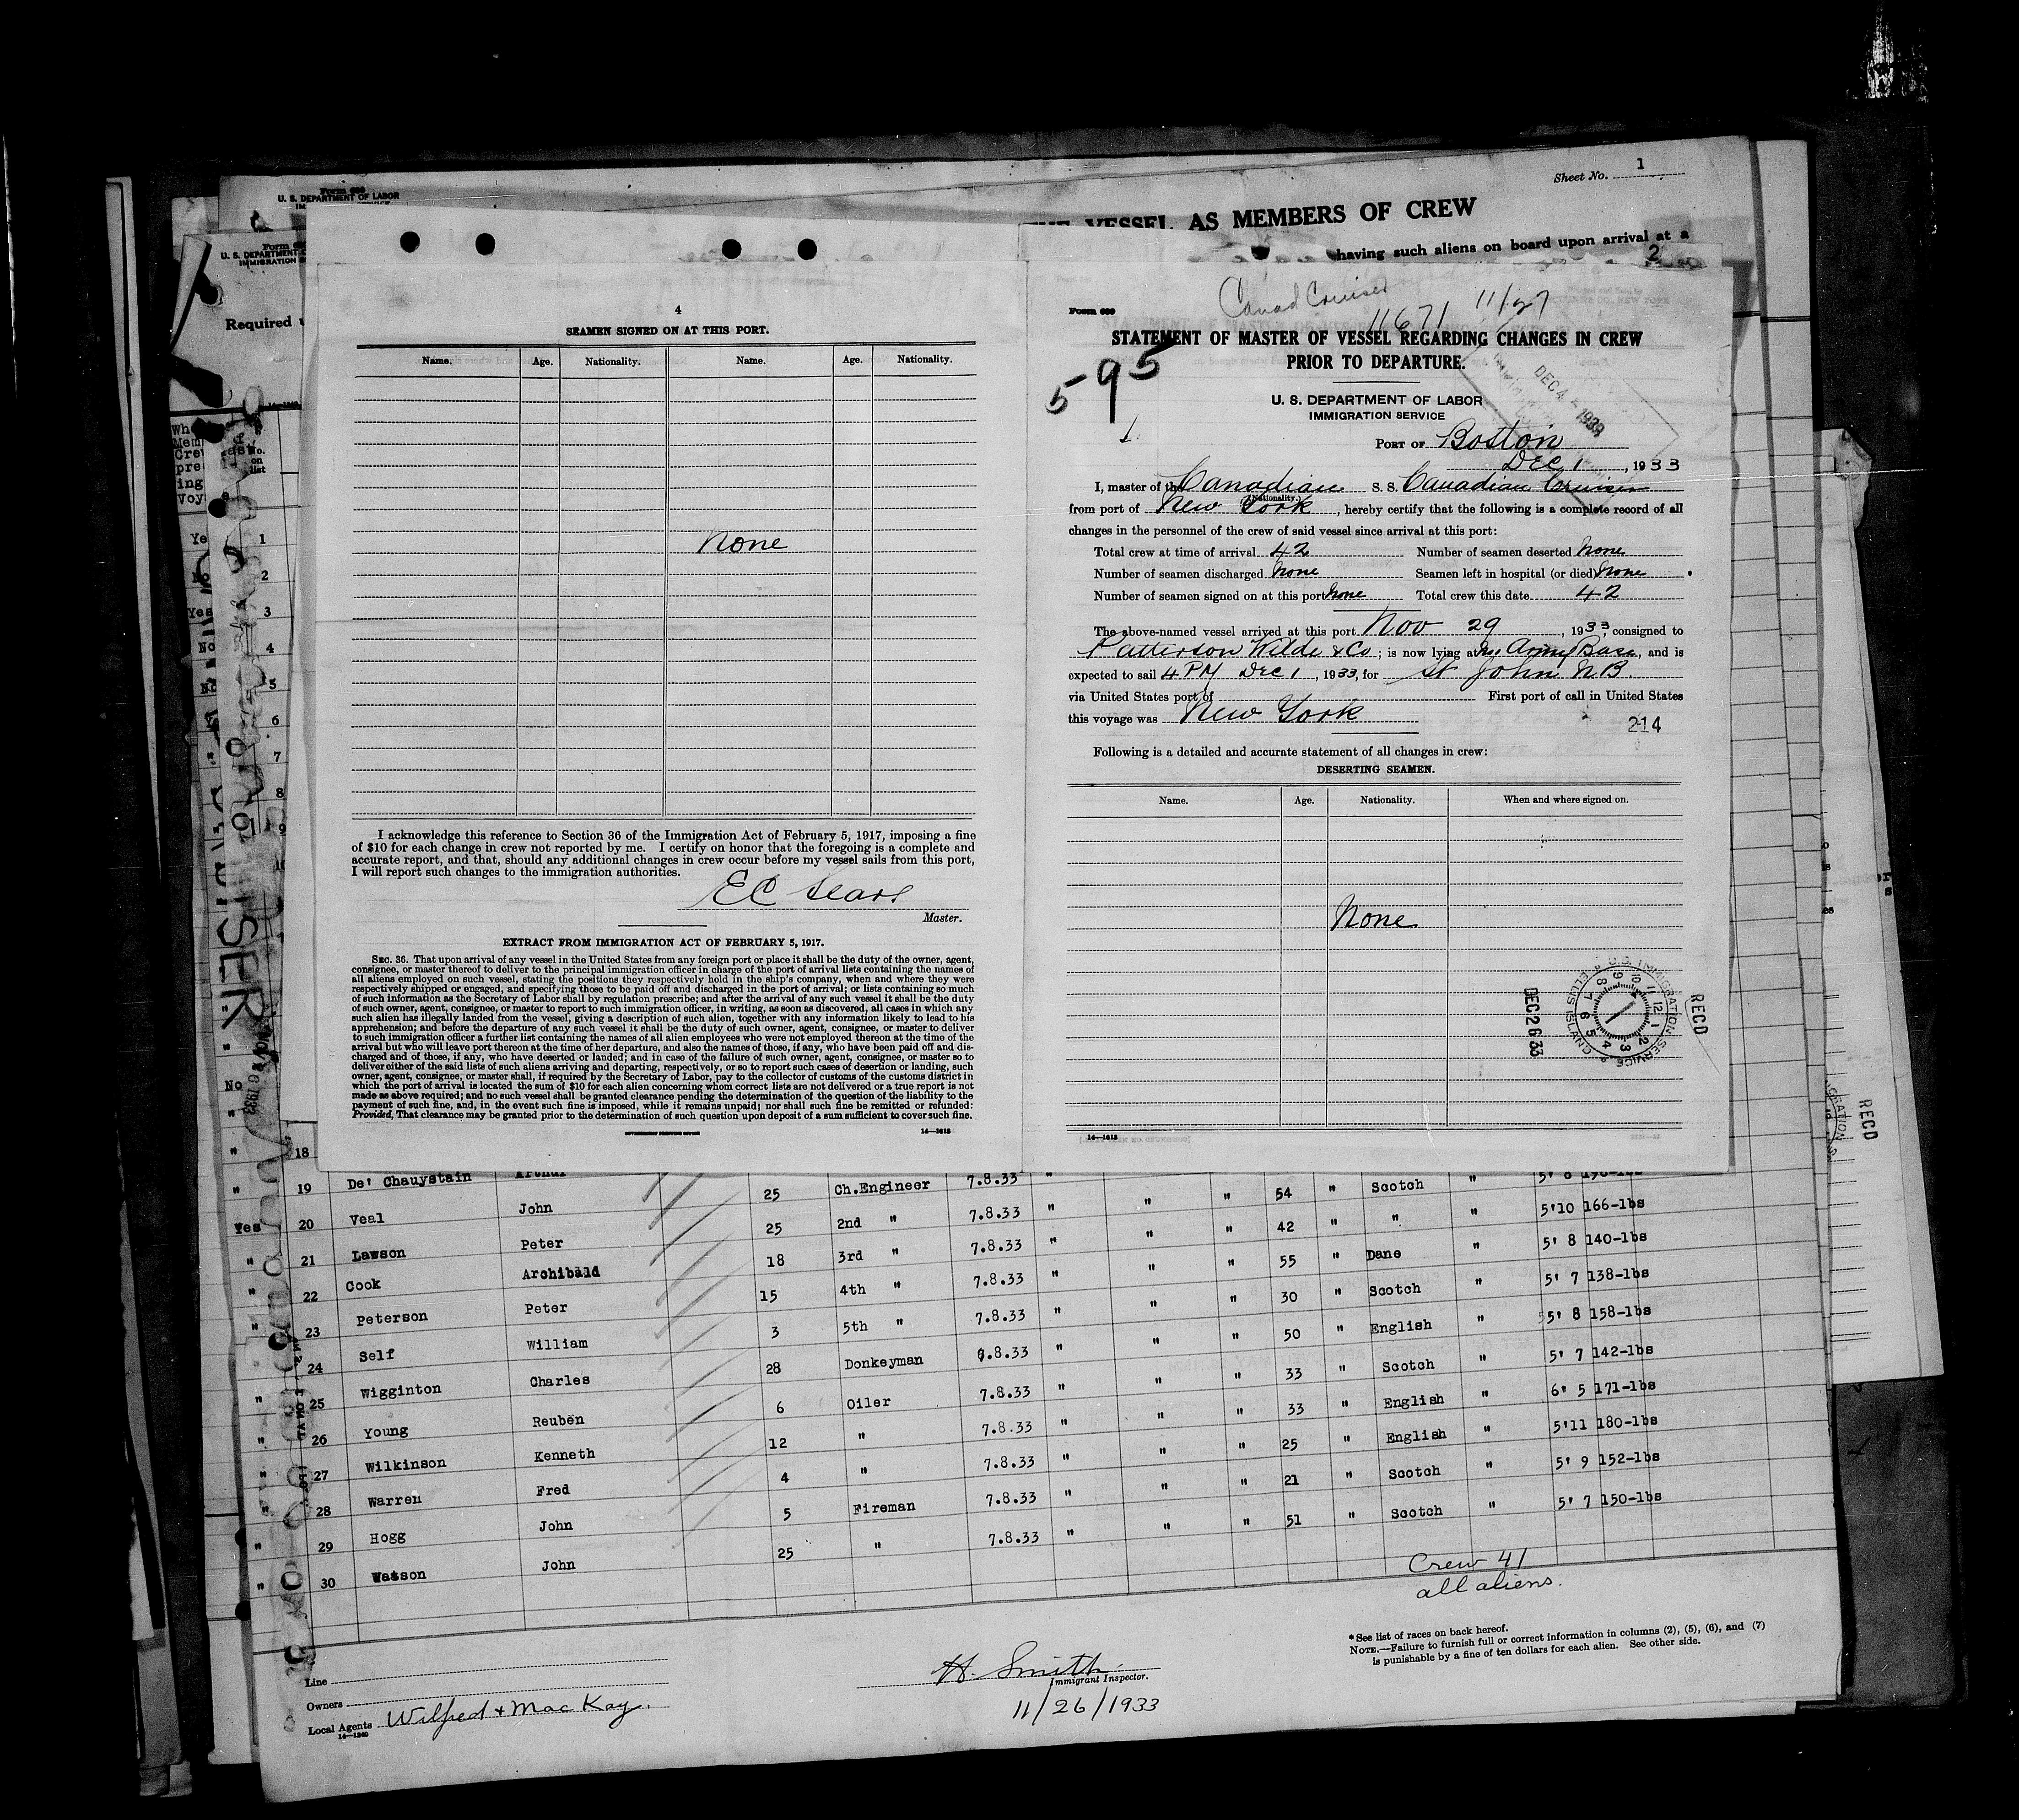 Sheet No. 1
Form 689
U. S. DEPARTMENT OF LABOR
VESSEL AS MEMBERS OF CREW
having such aliens on board upon arrival at a
2
U. S. DEPARTMENT
IMMIGRATION
Required
4
SEAMEN SIGNED ON AT THIS PORT.
Name. Age. Nationality. Name. Age. Nationality.
None
I acknowledge this reference to Section 36 of the Immigration Act of February 5, 1917, imposing a fine
of $10 for each change in crew not reported by me. I certify on honor that the foregoing is a complete and
accurate report, and that, should any additional changes in crew occur before my vessel sails from this port,
I will report such changes to the immigration authorities.
EC Sears
Master.
EXTRACT FROM IMMIGRATION ACT OF FEBRUARY 5, 1917.
SEC. 36. That upon arrival of any vessel in the United States from any foreign port or place it shall be the duty of the owner, agent,
consignee, or master thereof to deliver to the principal immigration officer in charge of the port of arrival lists containing the names of
all aliens employed on such vessel, stating the positions they respectively hold in the ship's company, when and where they were
respectively shipped or engaged, and specifying those to be paid off and discharged in the port of arrival; or lists containing so much
of such information as the Secretary of Labor shall by regulation prescribe; and after the arrival of any such vessel it shall be the duty
of such owner, agent, consignee, or master to report to such immigration officer, in writing, as soon as discovered, all cases in which any
such alien has illegally landed from the vessel, giving a description of such alien, together with any information likely to lead to his
apprehension; and before the departure of any such vessel it shall be the duty of such owner, agent, consignee, or master to deliver
to such immigration officer a further list containing the names of all alien employees who were not employed thereon at the time of the
arrival but who will leave port thereon at the time of her departure, and also the names of those, if any, who have been paid off and dis-
charged and of those, if any, who have deserted or landed; and in case of the failure of such owner, agent, consignee, or master so to
deliver either of the said lists of such aliens arriving and departing, respectively, or so to report such cases of desertion or landing, such
owner, agent, consignee, or master shall, if required by the Secretary of Labor, pay to the collector of customs of the customs district in
which the port of arrival is located the sum of $10 for each alien concerning whom correct lists are not delivered or a true report is not
made as above required; and no such vessel shall be granted clearance pending the determination of the question of the liability to the
payment of such fine, and, in the event such fine is imposed, while it remains unpaid; nor shall such fine be remitted or refunded:
Provided, That clearance may be granted prior to the determination of such question upon deposit of a sum sufficient to cover such fine.
GOVERNMENT PRINTING OFFICE 14—1618
Canad Cruiser
11671 11/27
Form 689
STATEMENT OF MASTER OF VESSEL REGARDING CHANGES IN CREW
PRIOR TO DEPARTURE.
595
DEC 4 - 1933
U. S. DEPARTMENT OF LABOR
IMMIGRATION SERVICE
PORT OF Boston
Dec 1, 1933
I, master of the Canadian S. S. Canadian Cruiser
(Nationality.)
from port of New York, hereby certify that the following is a complete record of all
changes in the personnel of the crew of said vessel since arrival at this port:
Total crew at time of arrival 42 Number of seamen deserted None
Number of seamen discharged None Seamen left in hospital (or died) None
Number of seamen signed on at this port None Total crew this date 42
The above-named vessel arrived at this port Nov 29, 1933, consigned to
Patterson Wilde & Co; is now lying at Army Base, and is
expected to sail 4 PM Dec 1, 1933, for St John N.B.
via United States port of First port of call in United States
this voyage was New York
214
Following is a detailed and accurate statement of all changes in crew:
DESERTING SEAMEN.
Name. Age. Nationality. When and where signed on.
None
U.S. IMMIGRATION SERVICE ELLIS ISLAND
RECD
DEC 26 33
14—1618
RECD
18
19 De' Chauystain Arthur 25 Ch.Engineer 7.8.33 " " " 54 " Scotch " 5' 8
Yes 20 Veal John 25 2nd " 7.8.33 " " " 42 " " " 5'10 166-lbs
" 21 Lawson Peter 18 3rd " 7.8.33 " " " 55 " Dane " 5' 8 140-lbs
" 22 Cook Archibald 15 4th " 7.8.33 " " " 30 " Scotch " 5' 7 138-lbs
" 23 Peterson Peter 3 5th " 7.8.33 " " " 50 " English " 5' 8 158-lbs
" 24 Self William 28 Donkeyman 6.8.33 " " " 33 " Scotch " 5' 7 142-lbs
" 25 Wigginton Charles 6 Oiler 7.8.33 " " " 33 " English " 6' 5 171-lbs
" 26 Young Reuben 12 " 7.8.33 " " " 25 " English " 5'11 180-lbs
" 27 Wilkinson Kenneth 4 " 7.8.33 " " " 21 " Scotch " 5' 9 152-lbs
" 28 Warren Fred 5 Fireman 7.8.33 " " " 51 " Scotch " 5' 7 150-lbs
" 29 Hogg John 25 " 7.8.33 "
" 30 Watson John
Crew 41
all aliens.
* See list of races on back hereof.
NOTE.—Failure to furnish full or correct information in columns (2), (5), (6), and (7)
is punishable by a fine of ten dollars for each alien. See other side.
Line
Owners
Local Agents Wilfred & MacKay.
14—1240
H. Smith
Immigrant Inspector.
11/26/1933